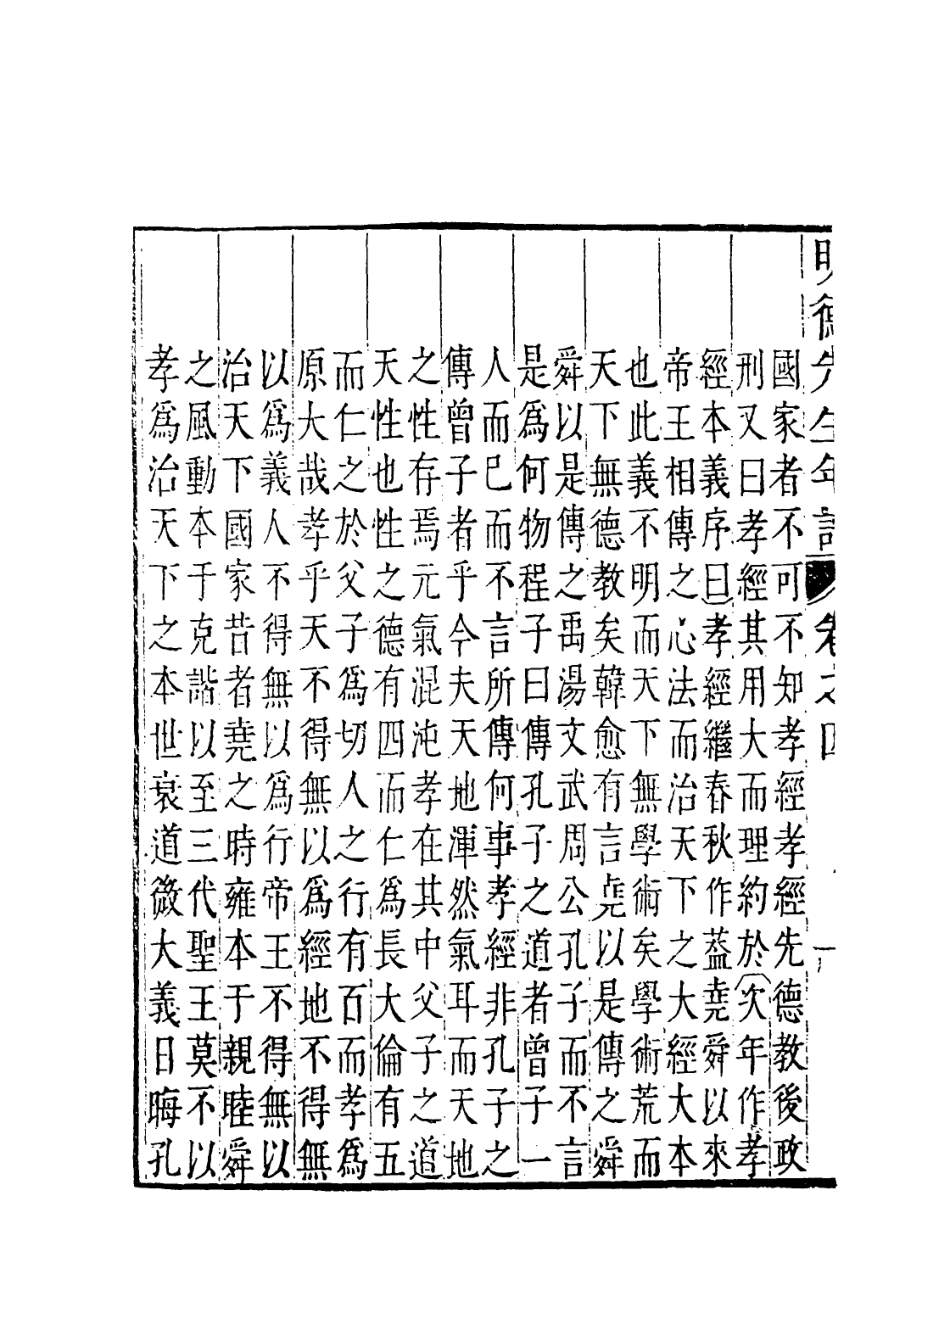 明德先生年譜 卷之四 一
國家者不可不知孝經孝經先德教後政
刑又曰孝經其用大而理約於次年作孝
經本義序曰孝經繼春秋作葢堯舜以來
帝王相傳之心法而治天下之大經大本
也此義不明而天下無學術矣學術荒而
天下無德教矣韓愈有言堯以是傳之舜
舜以是傳之禹湯文武周公孔子而不言
是爲何物程子曰傳孔子之道者曾子一
人而已而不言所傳何事孝經非孔子之
傳曾子者乎今夫天地渾然氣耳而天地
之性存焉元氣混沌孝在其中父子之道
天性也性之德有四而仁爲長大倫有五
而仁之於父子爲切人之行有百而孝爲
原大哉孝乎天不得無以爲經地不得無
以爲義人不得無以爲行帝王不得無以
治天下國家昔者堯之時雍本于親睦舜
之風動本于克諧以至三代聖王莫不以
孝爲治天下之本世衰道微大義日晦孔